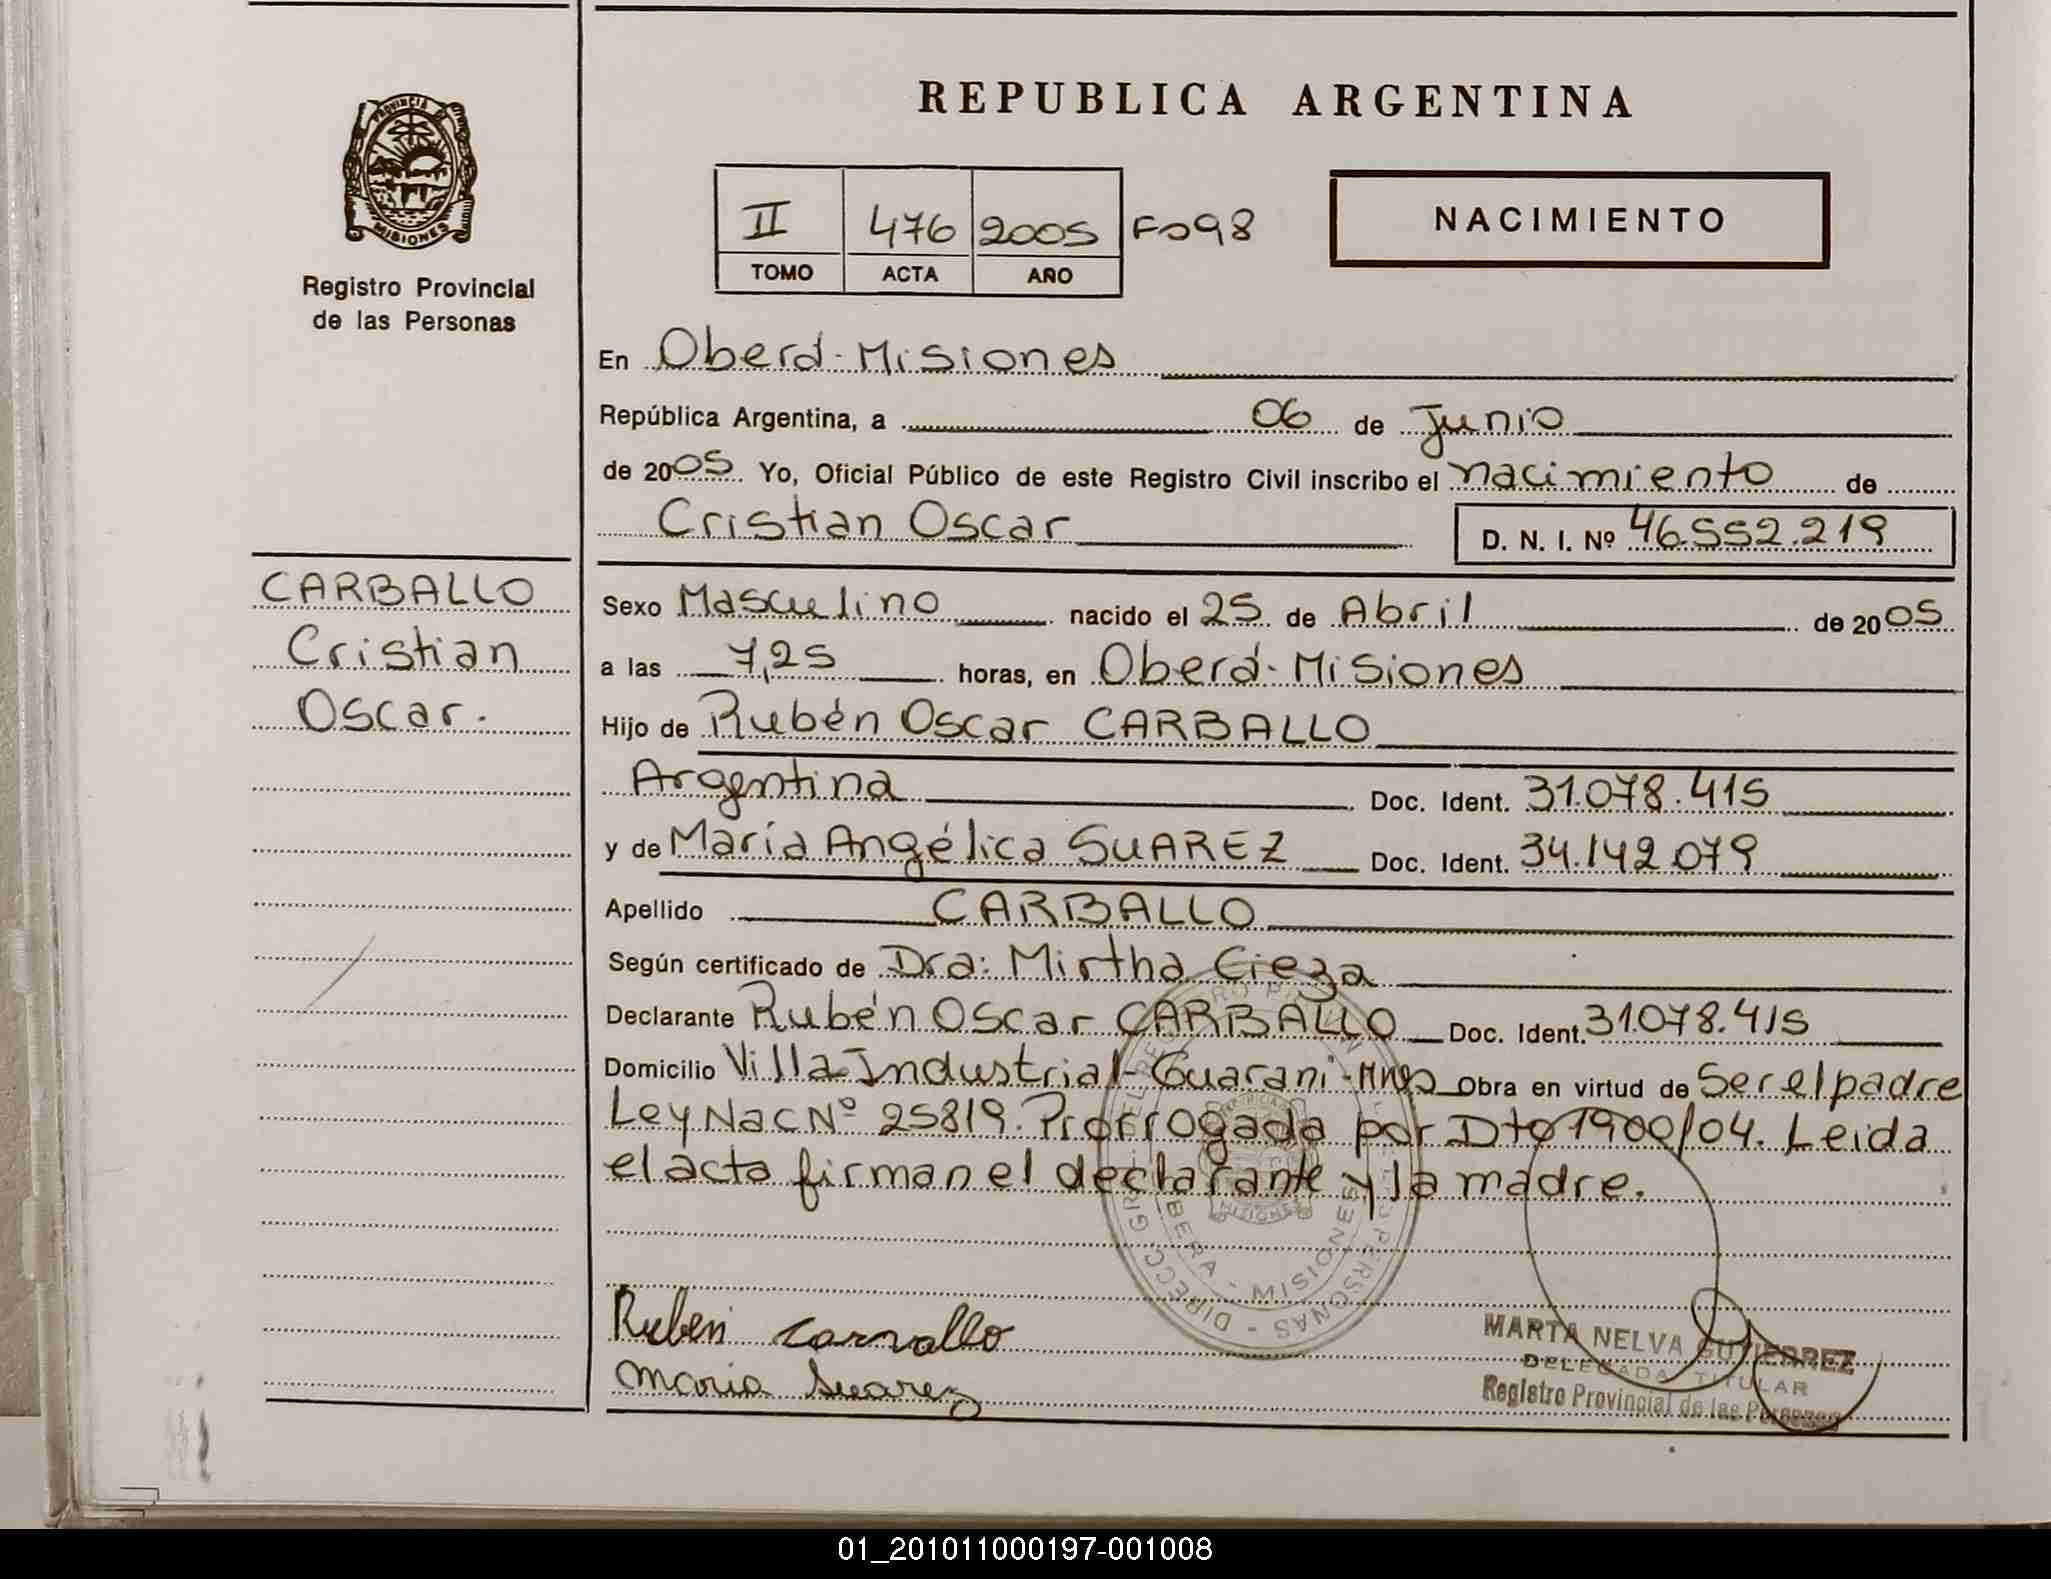 REPUBLICA ARGENTINA
PROVINCIA
MISIONES
Registro Provincial
de las Personas
II 476 2005 Fo98
TOMO ACTA AÑO
NACIMIENTO
En Oberá-Misiones
República Argentina, a 06 de Junio
de 2005. Yo, Oficial Público de este Registro Civil inscribo el nacimiento de
Cristian Oscar D. N. I. Nº 46.552.219
CARBALLO
Cristian
Oscar.
Sexo Masculino nacido el 25 de Abril de 2005
a las 7,25 horas, en Oberá-Misiones
Hijo de Rubén Oscar CARBALLO
Argentina Doc. Ident. 31.078.415
y de María Angélica SUAREZ Doc. Ident. 34.142.079
Apellido CARBALLO
Según certificado de Dra: Mirtha Cieza
Declarante Rubén Oscar CARBALLO Doc. Ident. 31.078.415
Domicilio Villa Industrial-Guarani-Mnes Obra en virtud de Ser el padre
Ley Nac Nº 25819. Prorrogada por Dto 1900/04. Leida
el acta firman el declarante y la madre.
OBERA - MISIONES
Ruben Carvallo
Maria Suarez
MARTA NELVA GUTIERREZ
DELEGADA TITULAR
Registro Provincial de las Personas
01_201011000197-001008